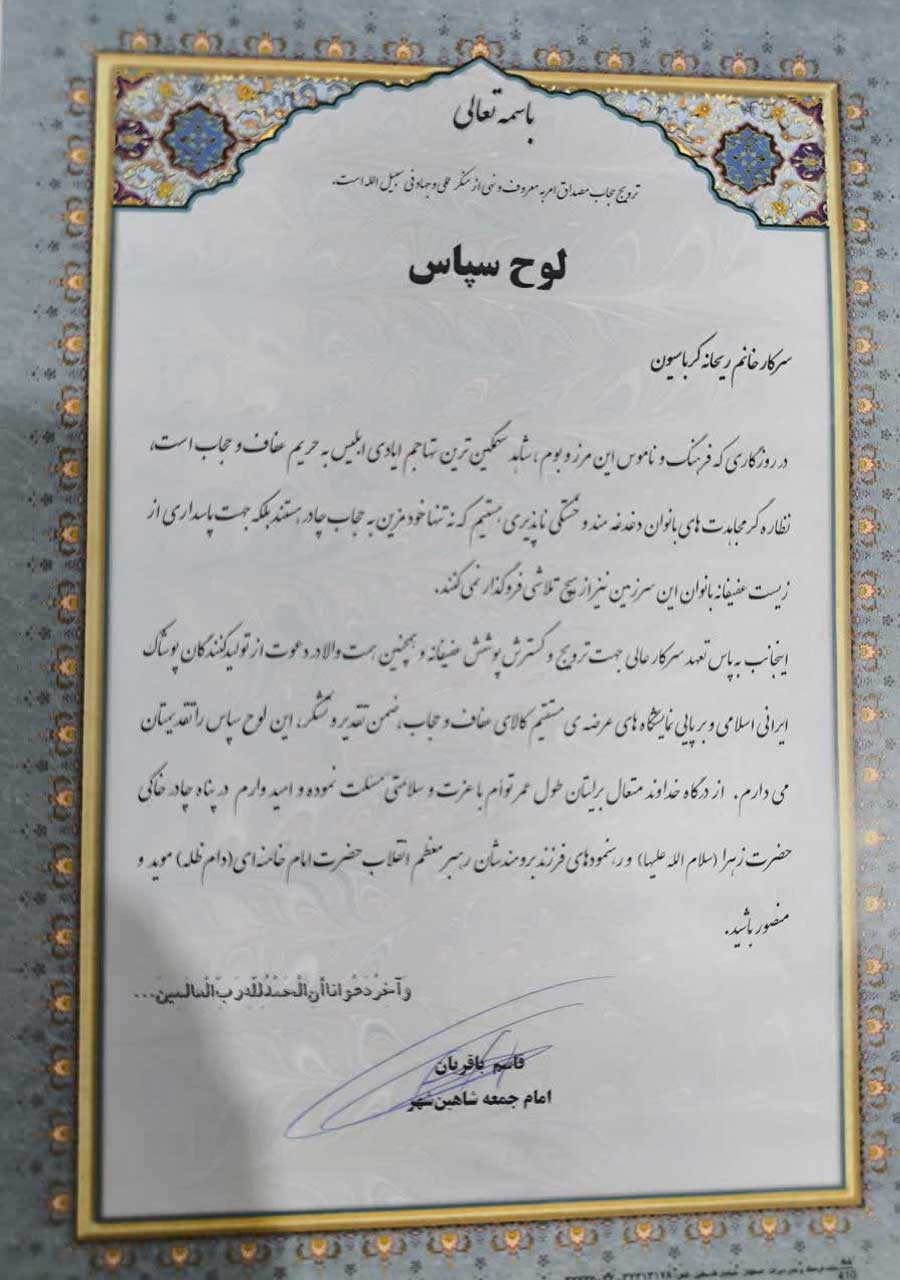 باسمه تعالی
ترویج حجاب مصداق امر به معروف و نهی از منکر عملی و جهاد فی سبیل الله است.
لوح سپاس
سرکار خانم ریحانه کرباسیون
در روزگاری که فرهنگ و ناموس این مرز و بوم ، شاهد سهمگین ترین تهاجم ایادی ابلیس به حریم عفاف و حجاب است،
نظاره گر مجاهدت های بانوان دغدغه مند و خستگی ناپذیری هستیم که نه تنها خود مزین به حجاب چادر هستند بلکه جهت پاسداری از
زیست عفیفانه بانوان این سرزمین نیز از هیچ تلاشی فروگذار نمی کنند.
اینجانب به پاس تعهد سرکار عالی جهت ترویج و گسترش پوشش عفیفانه و همچنین همت والا در دعوت از تولیدکنندگان پوشاک
ایرانی اسلامی و برپایی نمایشگاه های عرضه ی مستقیم کالای عفاف و حجاب، ضمن تقدیر و تشکر، این لوح سپاس را تقدیمتان
می دارم. از درگاه خداوند متعال برایتان طول عمر توأم با عزت و سلامتی مسئلت نموده و امید وارم در پناه چادر خاکی
حضرت زهرا (سلام الله علیها) و رهنمودهای فرزند برومندشان رهبر معظم انقلاب حضرت امام خامنه ای (دام ظله) موید و
منصور باشید.
وَآخِرُ دَعْوانا أَنِ الْحَمْدُ لِلَّهِ رَبِّ الْعالَمِينَ...
قاسم باقریان
امام جمعه شاهین‌شهر